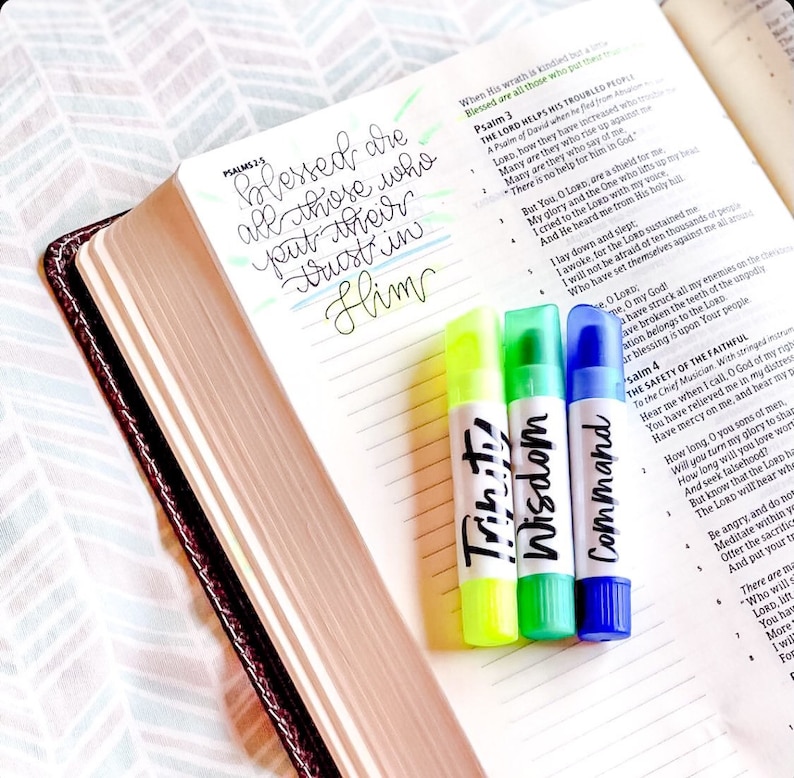 PSALMS 2:5
Blessed are
all those who
put their
trust in
Him
Trinity
Wisdom
Command
When His wrath is kindled but a little
Blessed are all those who put their trust
Psalm 3
THE LORD HELPS HIS TROUBLED PEOPLE
A Psalm of David when he fled from Absalom his
LORD, how they have increased who trouble
1
Many are they who rise up against me
2
Many are they who say of me,
"There is no help for him in God."
3
But You, O LORD, are a shield for me,
My glory and the One who lifts up my head
4
I cried to the LORD with my voice,
And He heard me from His holy hill.
5
I lay down and slept;
I awoke, for the LORD sustained me.
6
I will not be afraid of ten thousands of people
Who have set themselves against me all around
O LORD;
me, O my God!
have struck all my enemies on the cheekbone
have broken the teeth of the ungodly
belongs to the LORD.
blessing is upon Your people
Psalm 4
THE SAFETY OF THE FAITHFUL
To the Chief Musician. With stringed
Hear me when I call, O God of my
You have relieved me in my distress
Have mercy on me, and hear my
2
How long, O you sons of men,
Will you turn my glory to
How long will you love
And seek falsehood?
3
But know that the LORD
The LORD will hear
4
Be angry, and do
Meditate within
5
Offer the
And put your
6
There are
"Who will
LORD, lift
7
You
More
8
I will
For